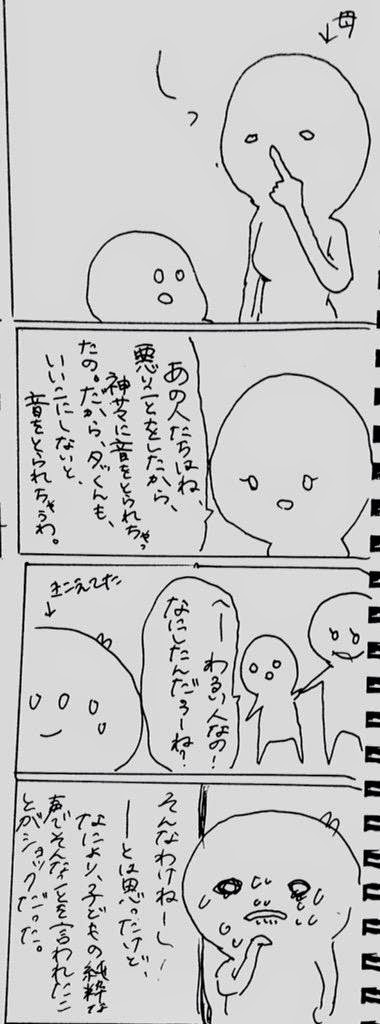 母
あの人たちはね、
悪いことをしたから、
神サマに音をとられちゃっ
たの。だから、ダッくんも、
いいこにしないと、
音をとられちゃうわ。
へーわるい人なの!
なにしたんだろーね?
きこえてた
そんなわけねーし!
ーとは思ったけど、
なにより、子どもの純粋な
声でそんなことを言われたこ
とがショックだった。